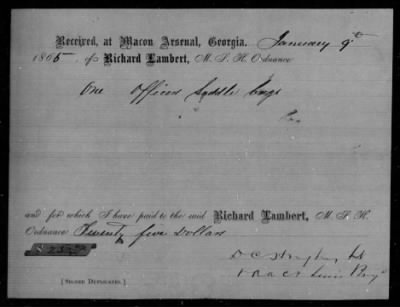 Received, at Macon Arsenal, Georgia. January 9th
1865 of Richard Lambert, M. S. K. Ordnance
One Officer Saddle bags
and for which I have paid to the said Richard Lambert, M. S. K.
Ordnance Twenty five Dollars
$ 25
D C
[Signed Duplicates.]